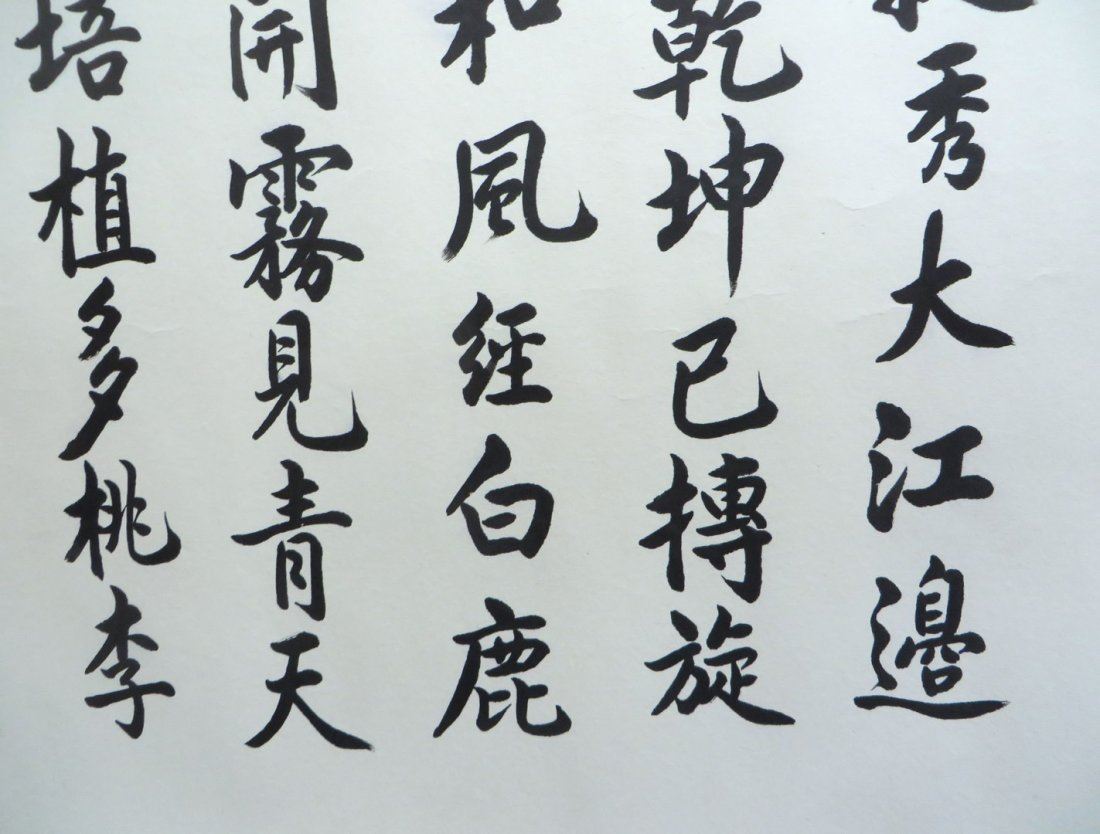 秀大江邊
乾坤已摶旋
和風經白鹿
開霧見青天
培植多桃李